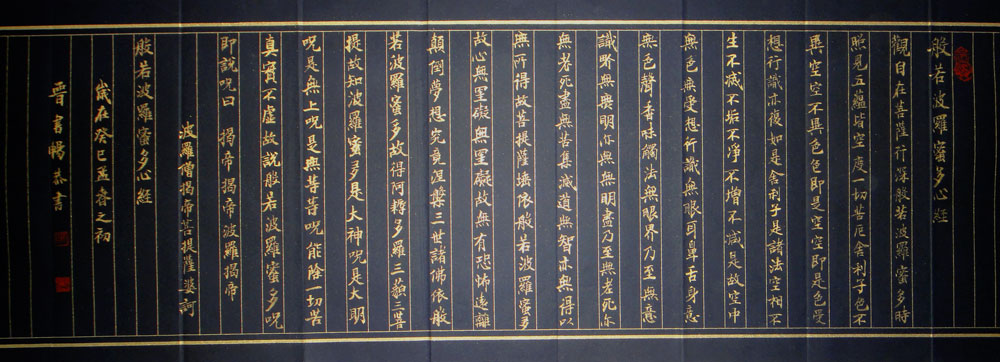 般若波羅蜜多心經
觀自在菩薩行深般若波羅蜜多時
照見五蘊皆空度一切苦厄舍利子色不
異空空不異色色即是空空即是色受
想行識亦復如是舍利子是諸法空相不
生不滅不垢不淨不增不減是故空中
無色無受想行識無眼耳鼻舌身意
無色聲香味觸法無眼界乃至無意
識界無無明亦無無明盡乃至無老死亦
無老死盡無苦集滅道無智亦無得以
無所得故菩提薩埵依般若波羅蜜多
故心無罣礙無罣礙故無有恐怖遠離
顛倒夢想究竟涅槃三世諸佛依般
若波羅蜜多故得阿耨多羅三藐三菩
提故知波羅蜜多是大神呪是大明
呪是無上呪是無等等呪能除一切苦
真實不虛故說般若波羅蜜多呪
即說呪曰 揭帝揭帝波羅揭帝
波羅僧揭帝菩提薩婆訶
般若波羅蜜多心經
歲在癸巳孟春之初
晋書暢恭書